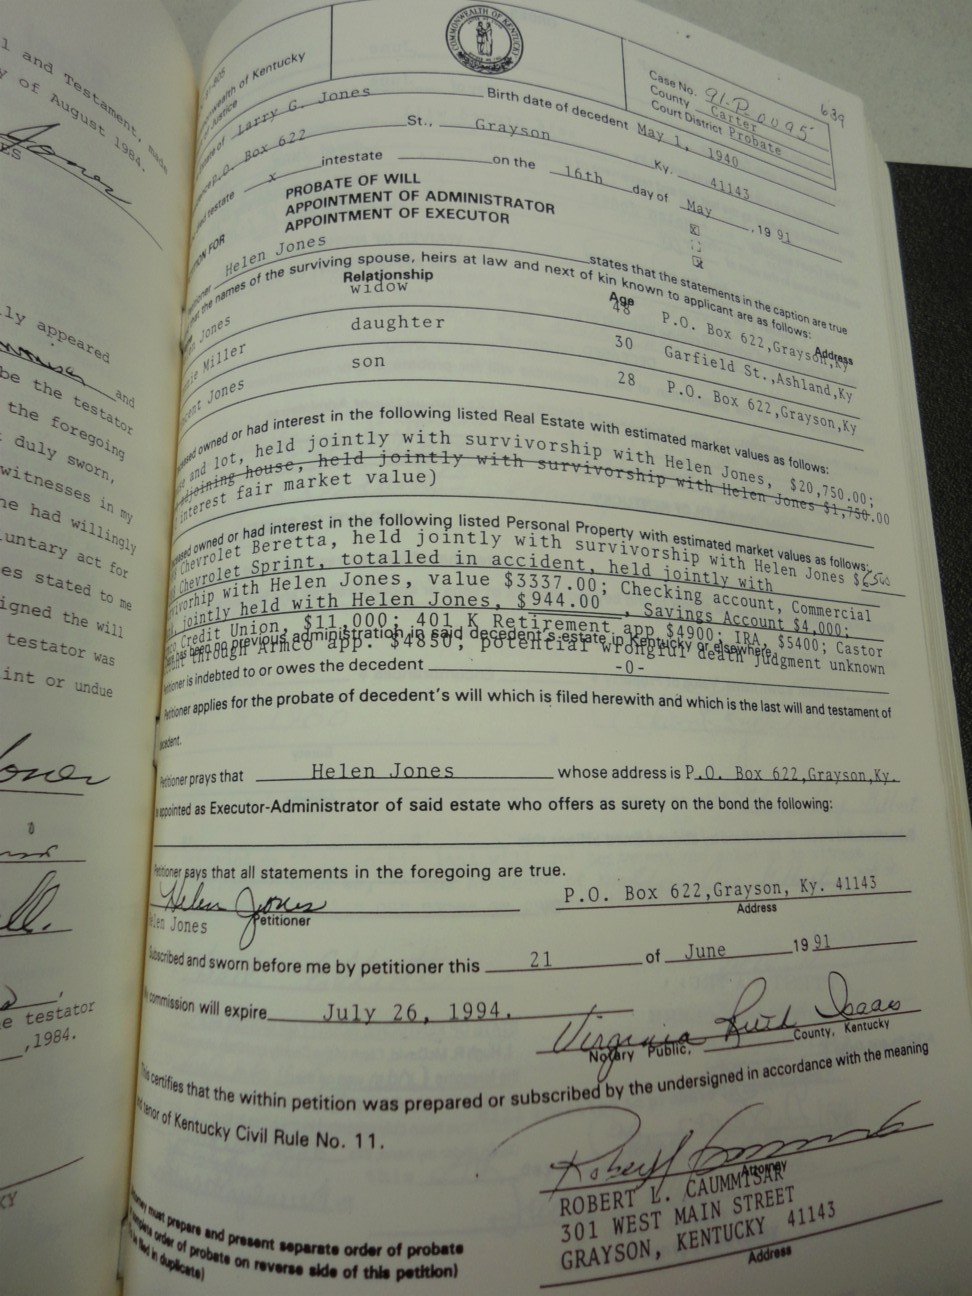 l and Testament, made
y of August 1984.
ES
lly appeared
and
be the testator
the foregoing
duly sworn,
witnesses in my
he had willingly
untary act for
es stated to me
igned the will
testator was
int or undue
e testator
,1984.
KY
COMMONWEALTH OF KENTUCKY
wealth of Kentucky
of Justice
639
Case No. 91-P-0095
County Carter
Court District Probate
Larry G. Jones Birth date of decedent May 1, 1940
P.O. Box 622 St., Grayson Ky. 41143
testate x intestate on the 16th day of May, 19 91
PROBATE OF WILL
APPOINTMENT OF ADMINISTRATOR
APPOINTMENT OF EXECUTOR
Helen Jones states that the statements in the caption are true
the names of the surviving spouse, heirs at law and next of kin known to applicant are as follows:
Relationship Age Address
Jones widow 48 P.O. Box 622,Grayson,Ky
Miller daughter 30 Garfield St.,Ashland,Ky
Jones son 28 P.O. Box 622,Grayson,Ky
owned or had interest in the following listed Real Estate with estimated market values as follows:
and lot, held jointly with survivorship with Helen Jones, $20,750.00;
adjoining house, held jointly with survivorship with Helen Jones $1,750.00
interest fair market value)
owned or had interest in the following listed Personal Property with estimated market values as follows:
Chevrolet Beretta, held jointly with survivorship with Helen Jones $6500
Chevrolet Sprint, totalled in accident, held jointly with
with Helen Jones, value $3337.00; Checking account, Commercial
jointly held with Helen Jones, $944.00, Savings Account $4,000;
Credit Union, $11,000; 401 K Retirement app $4900; IRA, $5400; Castor
has been no previous administration in said decedent's estate in Kentucky or elsewhere.
through Armco app. $4850, potential wrongful death judgment unknown
Petitioner is indebted to or owes the decedent -0-
Petitioner applies for the probate of decedent's will which is filed herewith and which is the last will and testament of
decedent.
Petitioner prays that Helen Jones whose address is P.O. Box 622,Grayson,Ky.
appointed as Executor-Administrator of said estate who offers as surety on the bond the following:
Petitioner says that all statements in the foregoing are true.
Helen Jones P.O. Box 622,Grayson, Ky. 41143
Helen Jones Petitioner Address
Subscribed and sworn before me by petitioner this 21 of June 19 91
commission will expire July 26, 1994.
Virginia Ruth Isaac
Notary Public, County, Kentucky
This certifies that the within petition was prepared or subscribed by the undersigned in accordance with the meaning
and tenor of Kentucky Civil Rule No. 11.
Attorney
ROBERT L. CAUMMISAR
301 WEST MAIN STREET
GRAYSON, KENTUCKY 41143
Address
must prepare and present separate order of probate
order of probate on reverse side of this petition)
filed in duplicate)